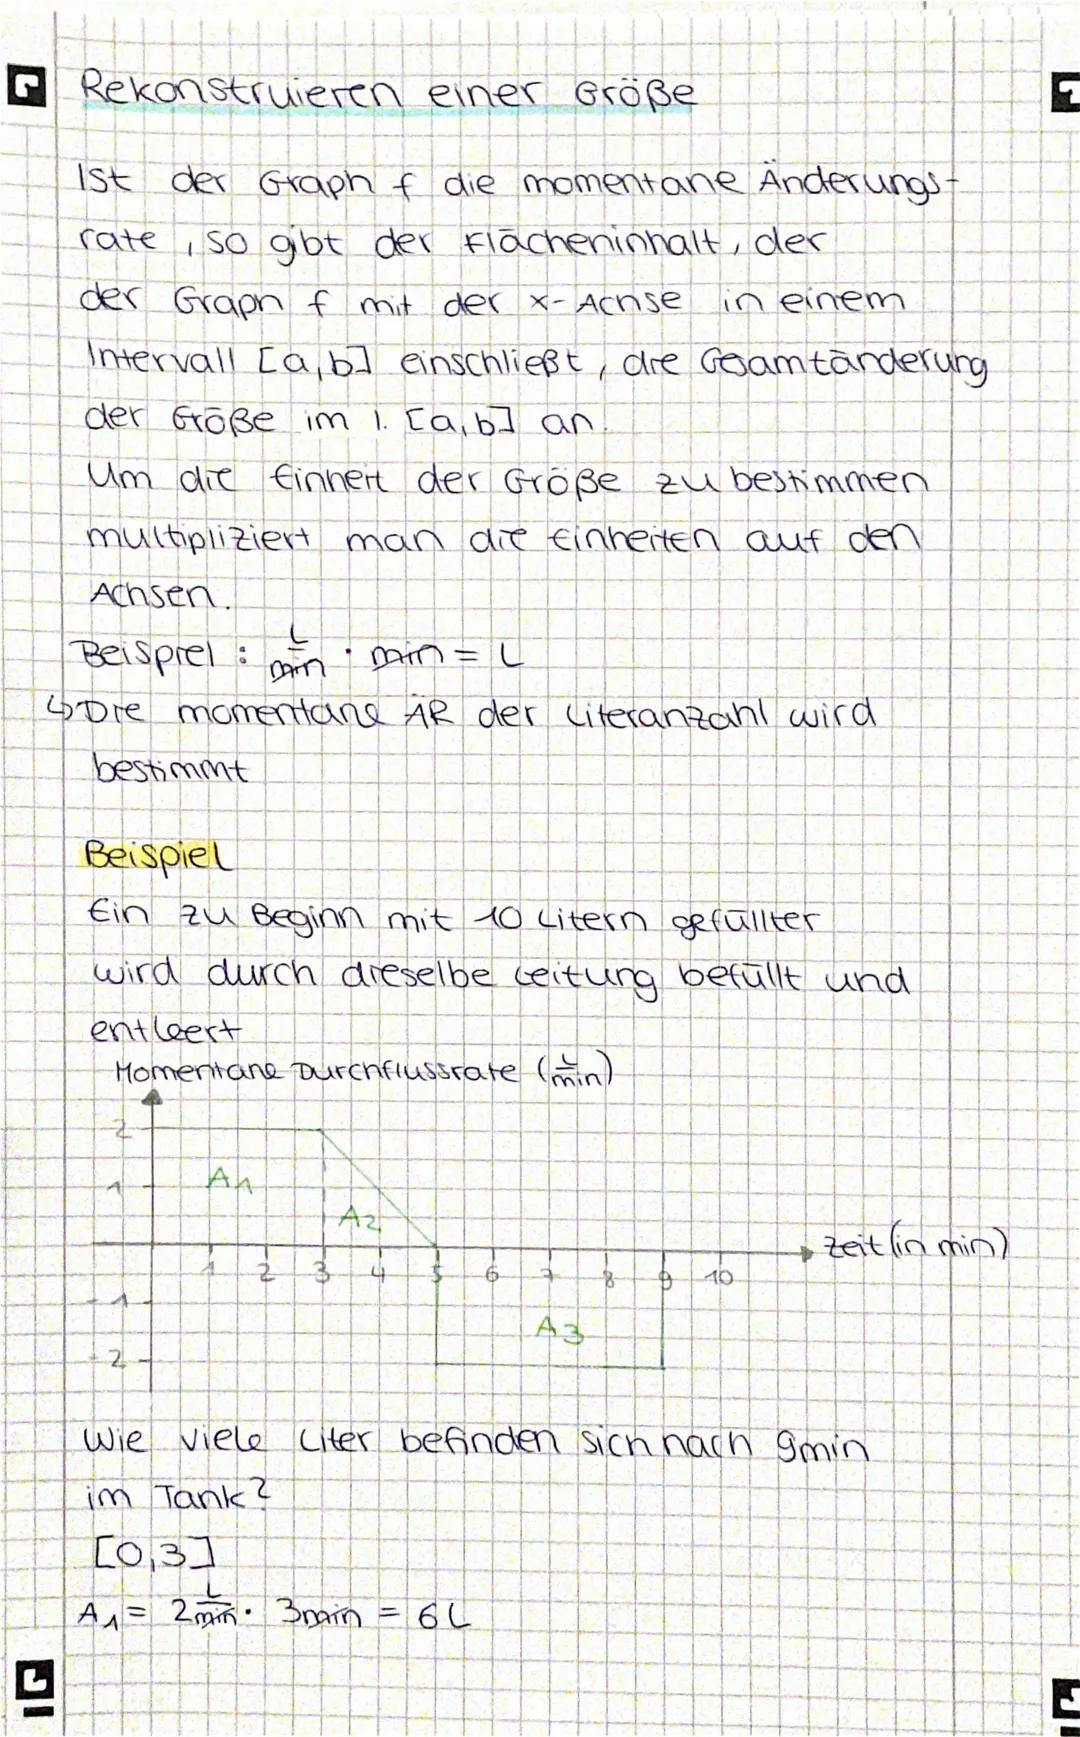 Rekonstruieren einer Größe
Ist der Graph f die momentane Änderungs-
rate, so gibt der Flächeninhalt, der
der Graph f mit der x-Achse in einem
Intervall [a,b] einschließt, die Gesamtänderung
der Größe im I. [a,b] an.
Um die Einheit der Größe zu bestimmen
multipliziert man die Einheiten auf den
Achsen.
Beispiel: L/min · min = L
↳ Die momentane ÄR der Literanzahl wird
bestimmt
Beispiel
Ein zu Beginn mit 10 Litern gefüllter
wird durch dieselbe Leitung befüllt und
entleert
Momentane Durchflussrate (L/min)
2
A1
1
A2
Zeit (in min)
1 2 3 4 5 6 7 8 9 10
-1
A3
-2
Wie viele Liter befinden sich nach 9min
im Tank?
[0,3]
A1 = 2 L/min · 3min = 6L